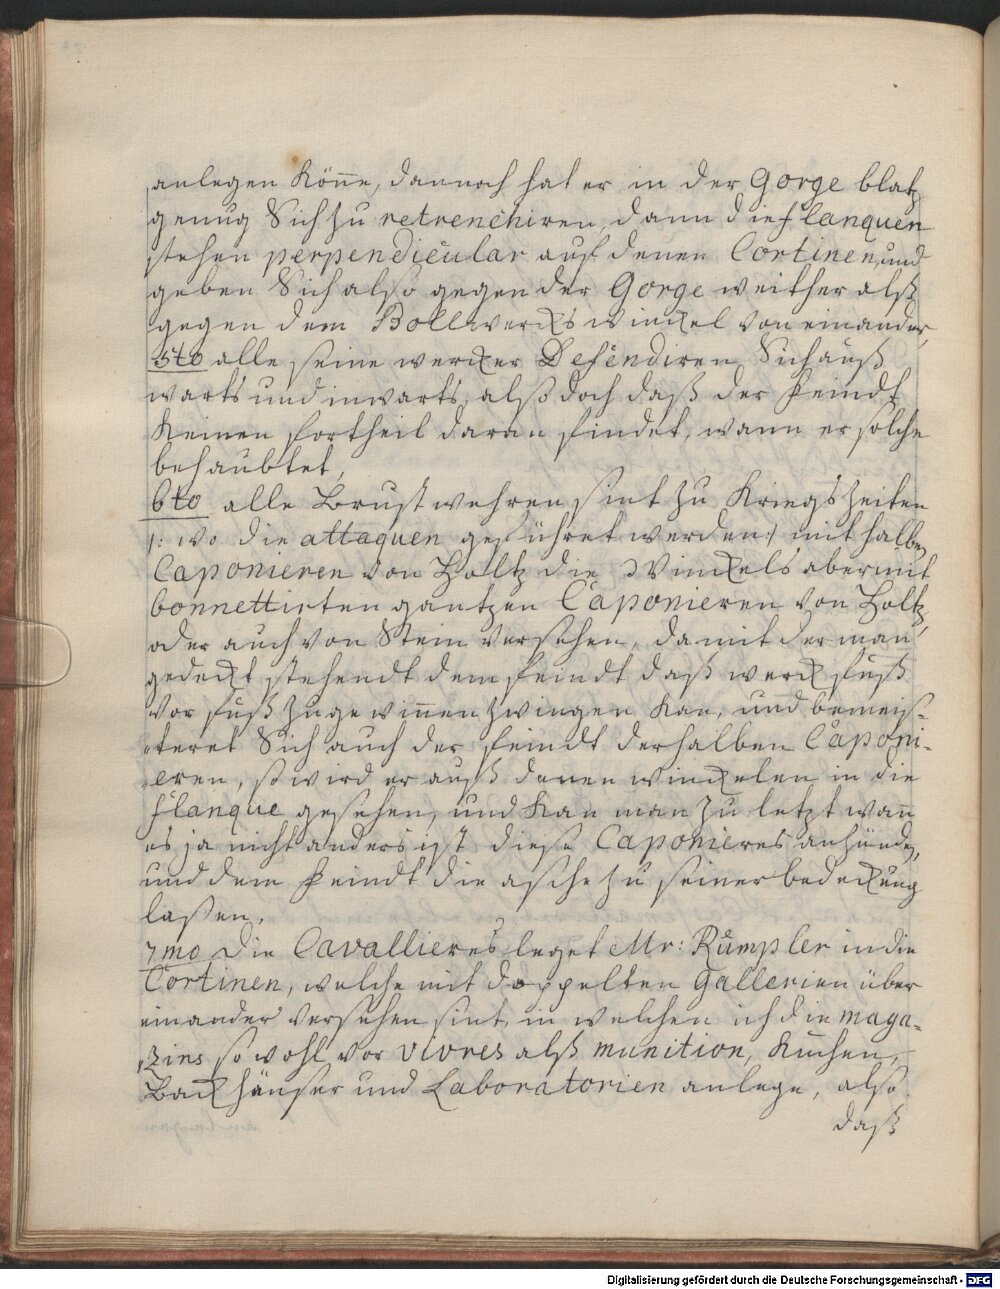 anlegen Könne, dannoch hat er in der Gorge blatz
genug Sich zu retrenchiren, dann die flanquen
stehen perpendicular auf denen Cortinen, und
geben Sich also gegen der Gorge weither alß
gegen dem Bollwercks winckel von einander,
5to alle seine wercker Defendiren Sich auß
warts und inwarts, also doch daß der feindt
Keinen fortheil daran findet, wann er solche
behaubtet,
6to alle Brustwehren sint zu Kriegs zeiten
/: wo die attaquen geführet werden :/ mit halben
Caponieren von Holtz die Winckels aber mit
bonnettirten gantzen Caponieren von Holtz,
oder auch von Stein versehen, damit der man
gedeckt stehendt dem feindt daß werck fuß
vor fuß zu gewinnen zwingen Kan, und bemeis-
teret Sich auch der feindt derhalben Caponi-
eren, so wird er auß denen winckelen in die
flanque gesehen, und Kan man zu letzt wann
es ja nicht anders ist diese Caponieres anzünden,
und dem feindt die asche zu seiner bedeckung
laßen,
7mo Die Cavallieres leget Mr: Rümpler in die
Cortinen, welche mit doppelten Gallerien über
einander versehen sint, in welchen ich die maga-
zins so wohl vor vivres alß munition, Kuchen,
Back häuser und Laboratorien anlege, also
daß
Digitalisierung gefördert durch die Deutsche Forschungsgemeinschaft - DFG